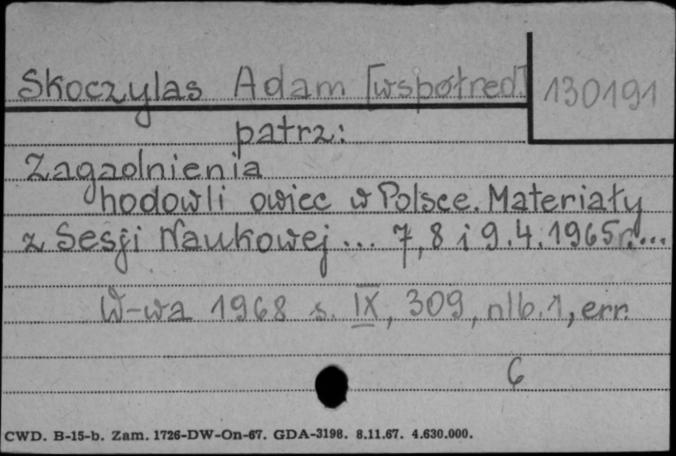 Skoczylas Adam [współred]
130191
patrz:
Zagadnienia
hodowli owiec w Polsce. Materiały
z Sesji Naukowej... 7, 8 i 9.4.1965r....
W-wa 1968 s. IX, 309, nlb. 1, err.
6
CWD. B-15-b. Zam. 1726-DW-On-67. GDA-3198. 8.11.67. 4.630.000.